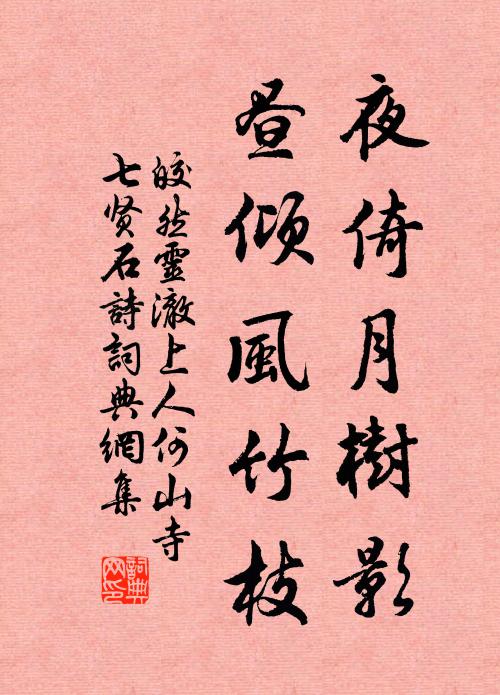 夜倚月樹影
昼傾風竹枝
皎然靈澈上人何山寺
七贤石詩詞典網集
詞典
网印